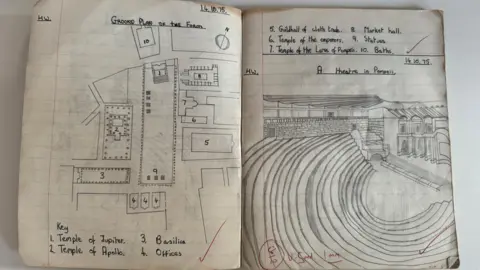 14.10.75.
H.W. GROUND PLAN OF THE FORUM.
10
1
8
2
6
5
3
9
4 4 4
Key
1. Temple of Jupiter. 3. Basilica
2. Temple of Apollo. 4. Offices
5. Guildhall of cloth trade. 8. Market hall.
6. Temple of the emperors. 9. Statues
7. Temple of the Lares of Pompeii. 10. Baths.
14.10.75.
H.W. A theatre in Pompeii.
V. Good